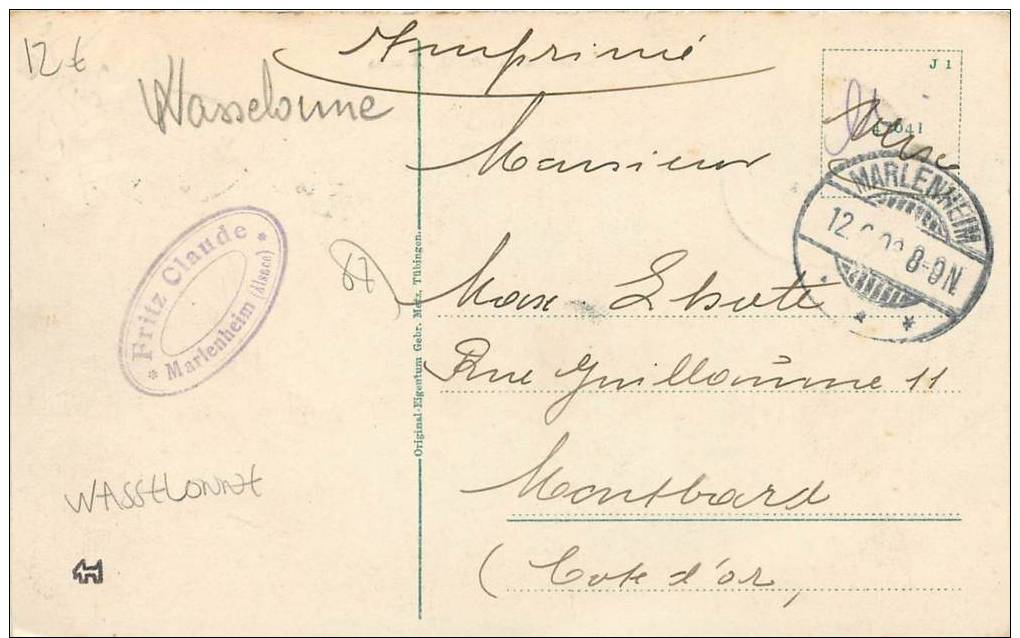 12 €
Imprimé
Wasselonne
J 1
MARLENHEIM
8-9N.
Monsieur
Fritz Claude
* Marlenheim (Alsace) *
87
Max Lhoté
Rue Guillaume 11
Original-Eigentum Gebr. Metz, Tübingen.
Montbard
WASSELONNE
(Cote d'or,